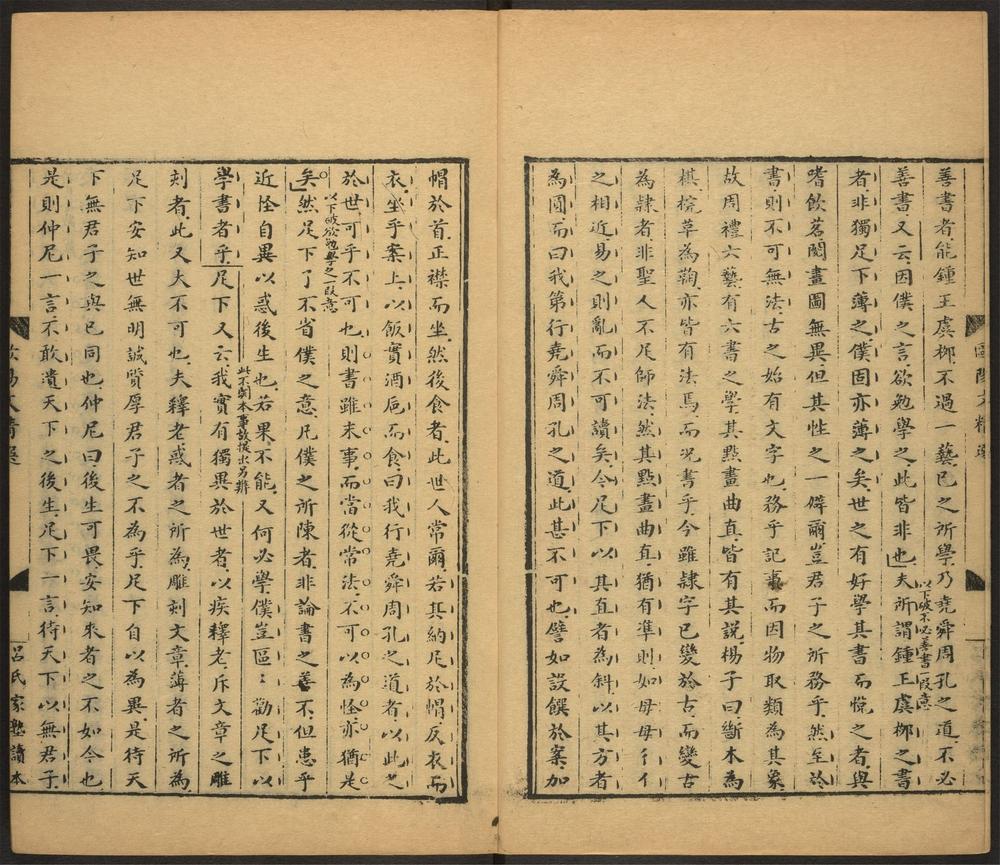 善書者能鍾王虞柳不過一藝已之所學乃堯舜周孔之道不必
善書又云因僕之言欲勉學之此皆非也夫所謂鍾王虞柳之書
以下破不必善書一段意
者非獨足下薄之僕固亦薄之矣世之有好學其書而悅之者與
嗜飲茗閱畫圖無異但其性之一僻爾豈君子之所務乎然至於
書則不可無法古之始有文字也務乎記事而因物取類為其象
故周禮六藝有六書之學其點畫曲直皆有其說楊子曰斷木為
棋梡革為鞠亦皆有法焉而況書乎今雖隸字已變於古而變古
為隸者非聖人不足師法然其點畫曲直猶有準則如毋母彳亻
之相近易之則亂而不可讀矣今足下以其直者為斜以其方者
為圓而曰我第行堯舜周孔之道此甚不可也譬如設饌於案加
帽於首正襟而坐然後食者此世人常爾若其納足於帽反衣而
衣坐乎案上以飯實酒巵而食曰我行堯舜周孔之道者以此之
於世可乎不可也則書雖末事而當從常法不可以為怪亦猶是
矣然足下了不省僕之意凡僕之所陳者非論書之善不但患乎
以下破欲勉學之一段意
近怪自異以惑後生也若果不能又何必學僕豈區〻勸足下以
學書者乎足下又云我實有獨異於世者以疾釋老斥文章之雕
此不關本事故提出另辨
刻者此又大不可也夫釋老惑者之所為雕刻文章薄者之所為
足下安知世無明誠質厚君子之不為乎足下自以為異是待天
下無君子之與已同也仲尼曰後生可畏安知來者之不如今也
是則仲尼一言不敢遺天下之後生足下一言待天下以無君子
呂氏家塾讀本